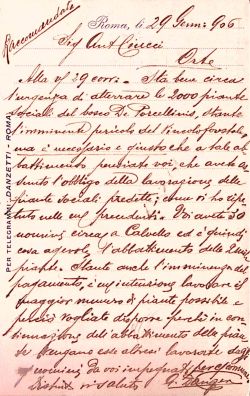 Raccomandata
Roma, li 29 Genn. 906
Sig Ant Ciucci
Orte
Alla sf 29 corr. - Sta bene circa
l'urgenza di atterrare le 2000 piante
sociali del bosco De Porcellinis, stante
l'imminente pericolo del vincolo forestale
ma è necessario e giusto che a tale ab
battimento pensiate voi, che avete as
sunto l'obbligo della lavorazione delle
piante sociali predette, come vi ho ri
tuto nelle mie precedenti. Voi avete 30
uomini circa a Calvello ed è quindi
cosa agevole l'abbattimento delle 2 mila
piante. Stante anche l'imminenza del
pagamento, è mia intenzione lavorare il
maggior numero di piante possibile e
perciò vogliate disporre perchè in con
tinuazione dell'abbattimento delle pian
te vengano esse altresì lavorate dagli
uomini da voi impegnati
Distinti vi saluto G. Danzetti
PER TELEGRAMMI: DANZETTI - ROMA